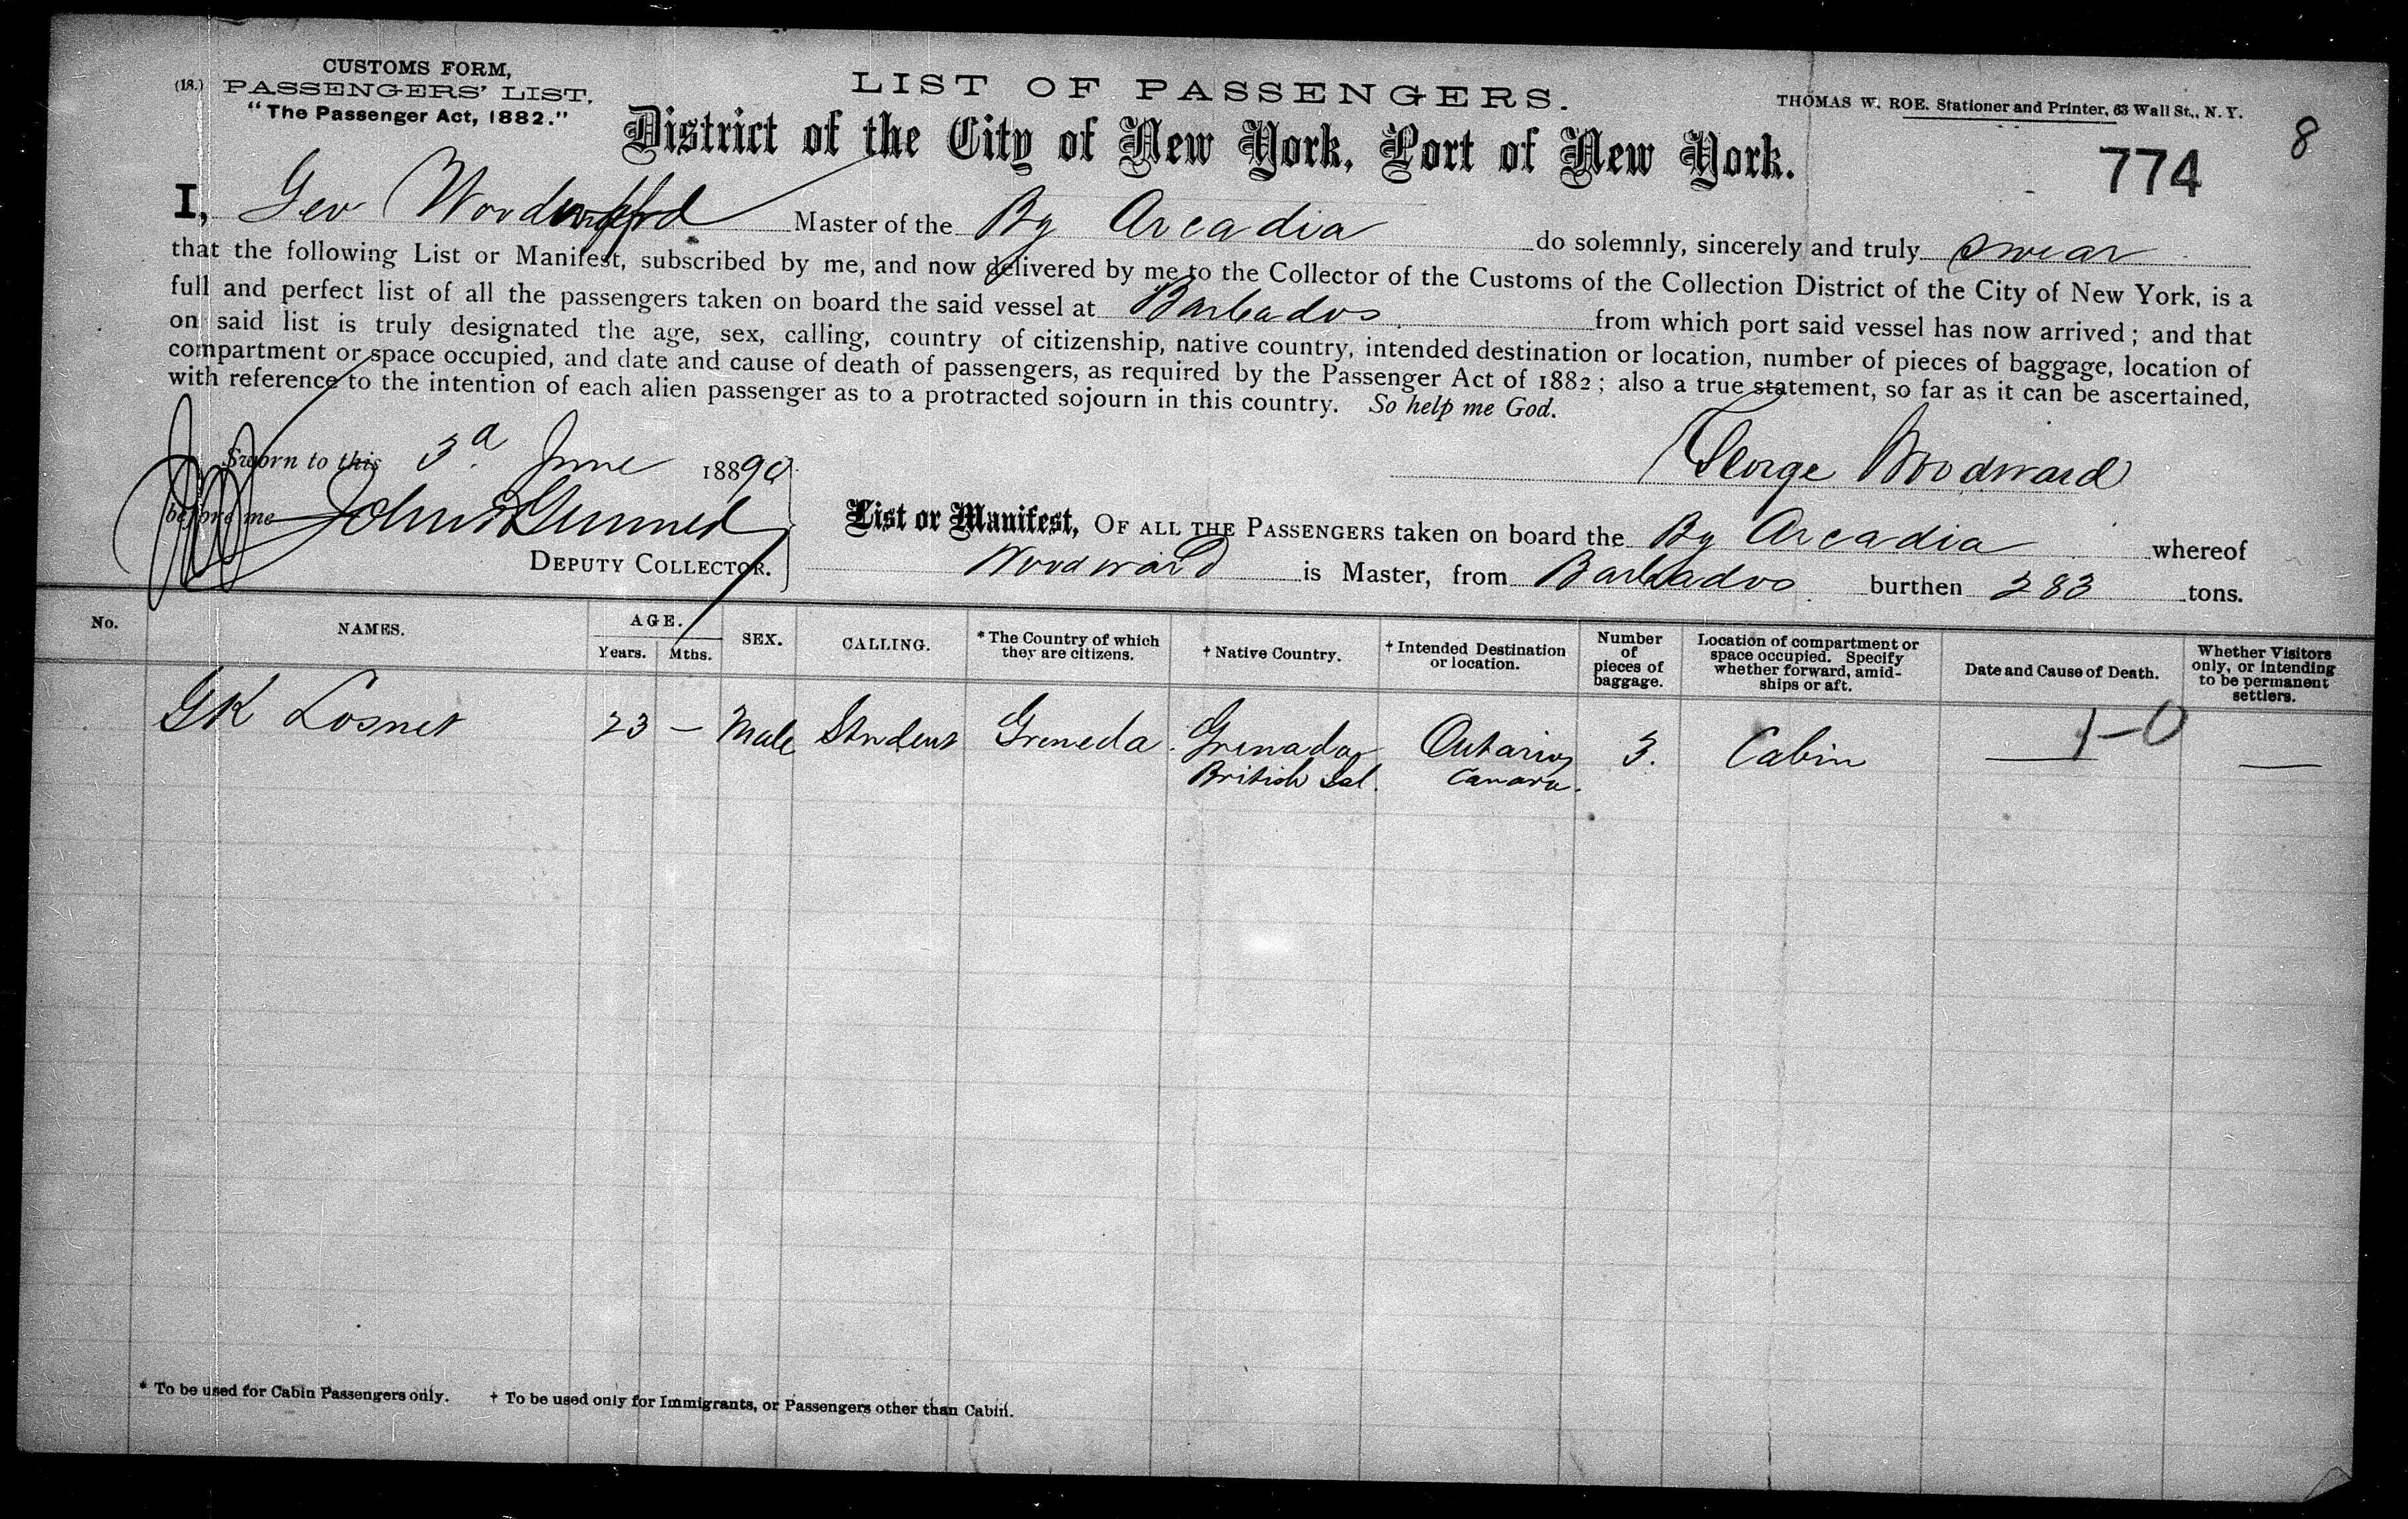 CUSTOMS FORM,
(18.) PASSENGERS' LIST.
"The Passenger Act, 1882."
LIST OF PASSENGERS.
THOMAS W. ROE. Stationer and Printer, 63 Wall St., N. Y.
8
District of the City of New York, Port of New York.
774
I, Geo Master of the Bg Arcadia do solemnly, sincerely and truly swear
that the following List or Manifest, subscribed by me, and now delivered by me to the Collector of the Customs of the Collection District of the City of New York, is a
full and perfect list of all the passengers taken on board the said vessel at Barbados from which port said vessel has now arrived; and that
on said list is truly designated the age, sex, calling, country of citizenship, native country, intended destination or location, number of pieces of baggage, location of
compartment or space occupied, and date and cause of death of passengers, as required by the Passenger Act of 1882; also a true statement, so far as it can be ascertained,
with reference to the intention of each alien passenger as to a protracted sojourn in this country. So help me God.
Sworn to this 3d June 18890
George Woodward
before me John
DEPUTY COLLECTOR.
List or Manifest, OF ALL THE PASSENGERS taken on board the Bg Arcadia whereof
Woodward is Master, from Barbados burthen 283 tons.
No. NAMES. AGE. Years. Mths. SEX. CALLING. * The Country of which they are citizens. † Native Country. † Intended Destination or location. Number of pieces of baggage. Location of compartment or space occupied. Specify whether forward, amidships or aft. Date and Cause of Death. Whether Visitors only, or intending to be permanent settlers.
GK 23 — Male Student Greneda Grenada Ontario 3. Cabin — 1-0 —
British Isl. Canara.
* To be used for Cabin Passengers only. † To be used only for Immigrants, or Passengers other than Cabin.